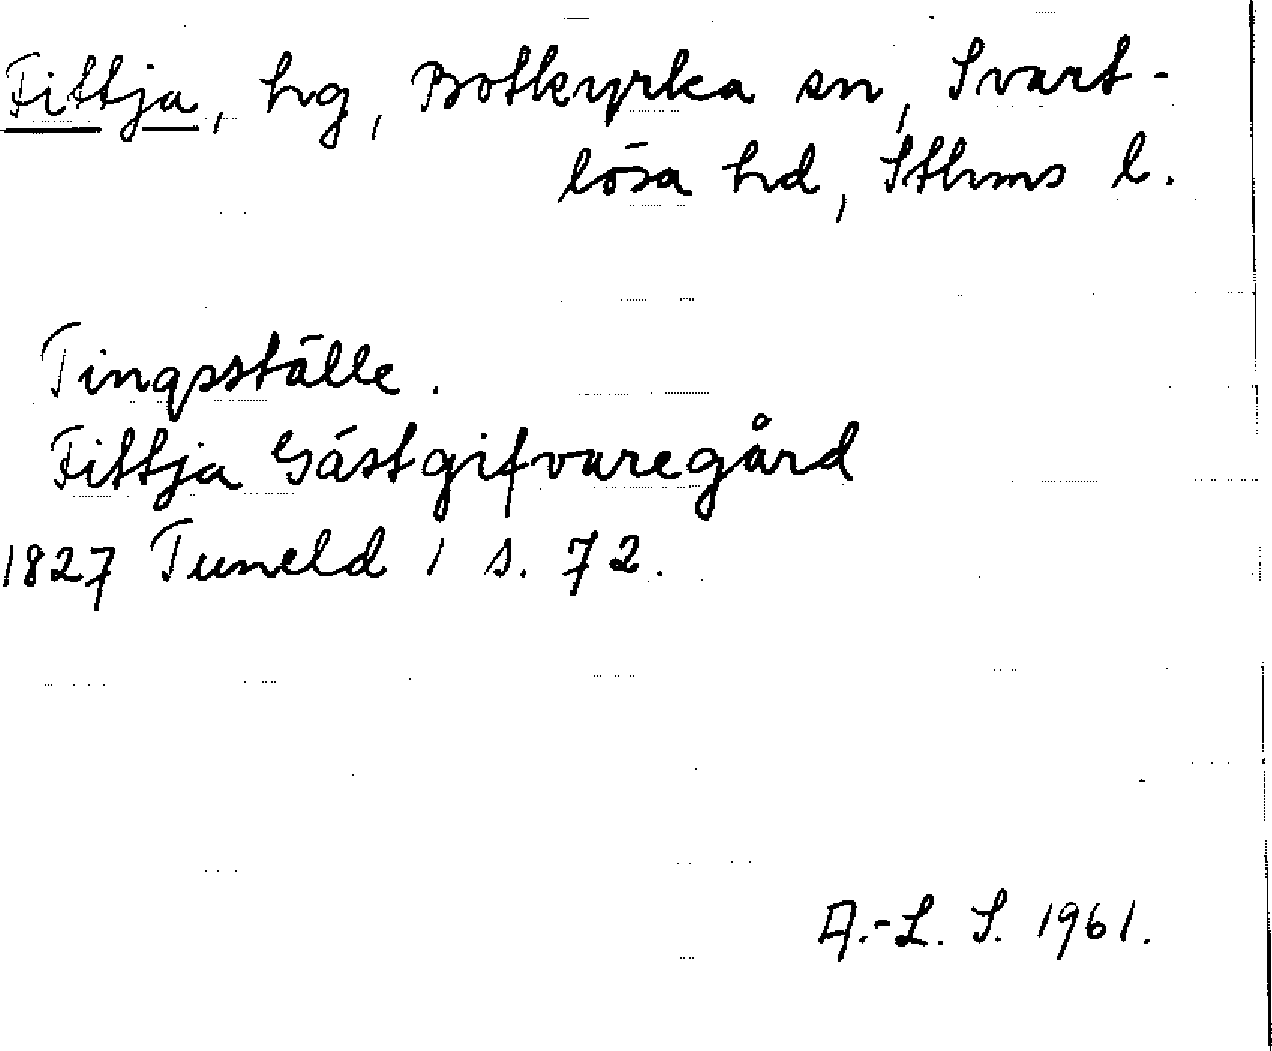 Fittja, hg, Botkyrka sn, Svart-
lösa hd, Sthms l.
Tingsställe.
Fittja Gästgifvaregård
1827 Tuneld 1 s. 72.
A.-L. S. 1961.